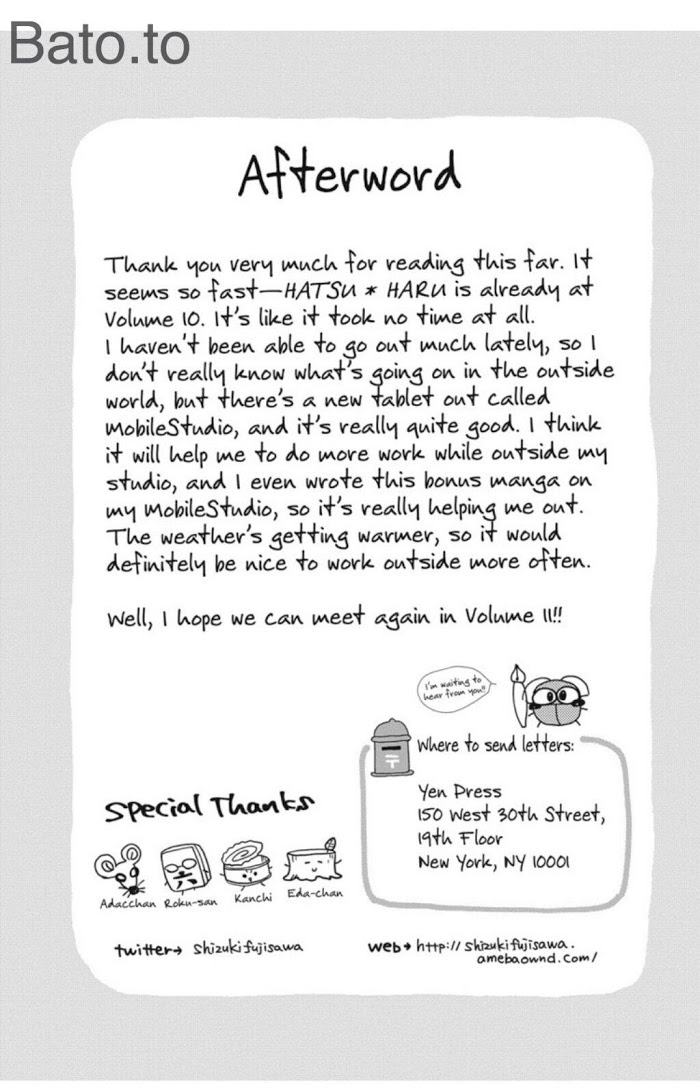 Bato.to
Afterword
Thank you very much for reading this far. It
seems so fast—HATSU * HARU is already at
Volume 10. It's like it took no time at all.
I haven't been able to go out much lately, so I
don't really know what's going on in the outside
world, but there's a new tablet out called
MobileStudio, and it's really quite good. I think
it will help me to do more work while outside my
studio, and I even wrote this bonus manga on
my MobileStudio, so it's really helping me out.
The weather's getting warmer, so it would
definitely be nice to work outside more often.
Well, I hope we can meet again in Volume 11!!
I'm waiting to
hear from you!!
Where to send letters:
Yen Press
150 West 30th Street,
19th Floor
New York, NY 10001
Special Thanks
Adacchan Roku-san Kanchi Eda-chan
twitter→ shizukifujisawa
web→ http://shizukifujisawa.
amebaownd.com/